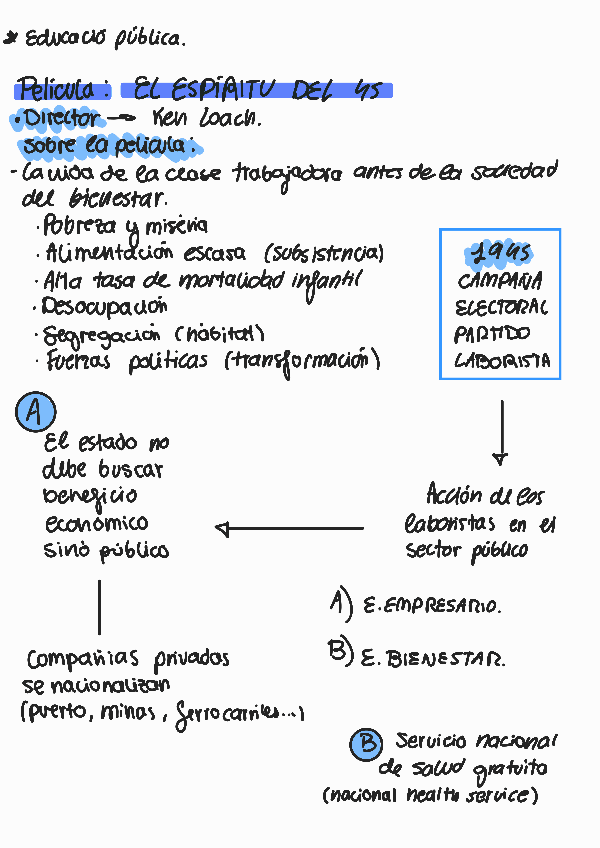 * Educació pública.
Película: EL ESPÍRITU DEL 45
• Director → Ken Loach.
Sobre la película:
- La vida de la clase trabajadora antes de la sociedad
del bienestar.
· Pobreza y miseria
· Alimentación escasa (subsistencia)
· Alta tasa de mortalidad infantil
· Desocupación
· Segregación (hábital)
· Fuerzas políticas (transformación)
1945
CAMPAÑA
ELECTORAL
PARTIDO
LABORISTA
Acción de los
laboristas en el
sector público
A) E. EMPRESARIO.
B) E. BIENESTAR.
A
El estado no
debe buscar
beneficio
económico
sinó público
Compañias privadas
se nacionalizan
(puerto, minas, ferrocarriles...)
B Servicio nacional
de salud gratuito
(nacional health service)